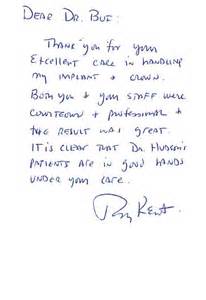 DEAR DR. BUE:
THANK YOU FOR YOUR
EXCELLENT CARE IN HANDLING
MY IMPLANT + CROWN.
BOTH YOU + YOUR STAFF WERE
COURTEOUS + PROFESSIONAL +
THE RESULT WAS GREAT.
IT IS CLEAR THAT DR. HUDSON'S
PATIENTS ARE IN GOOD HANDS
UNDER YOUR CARE.
Kent